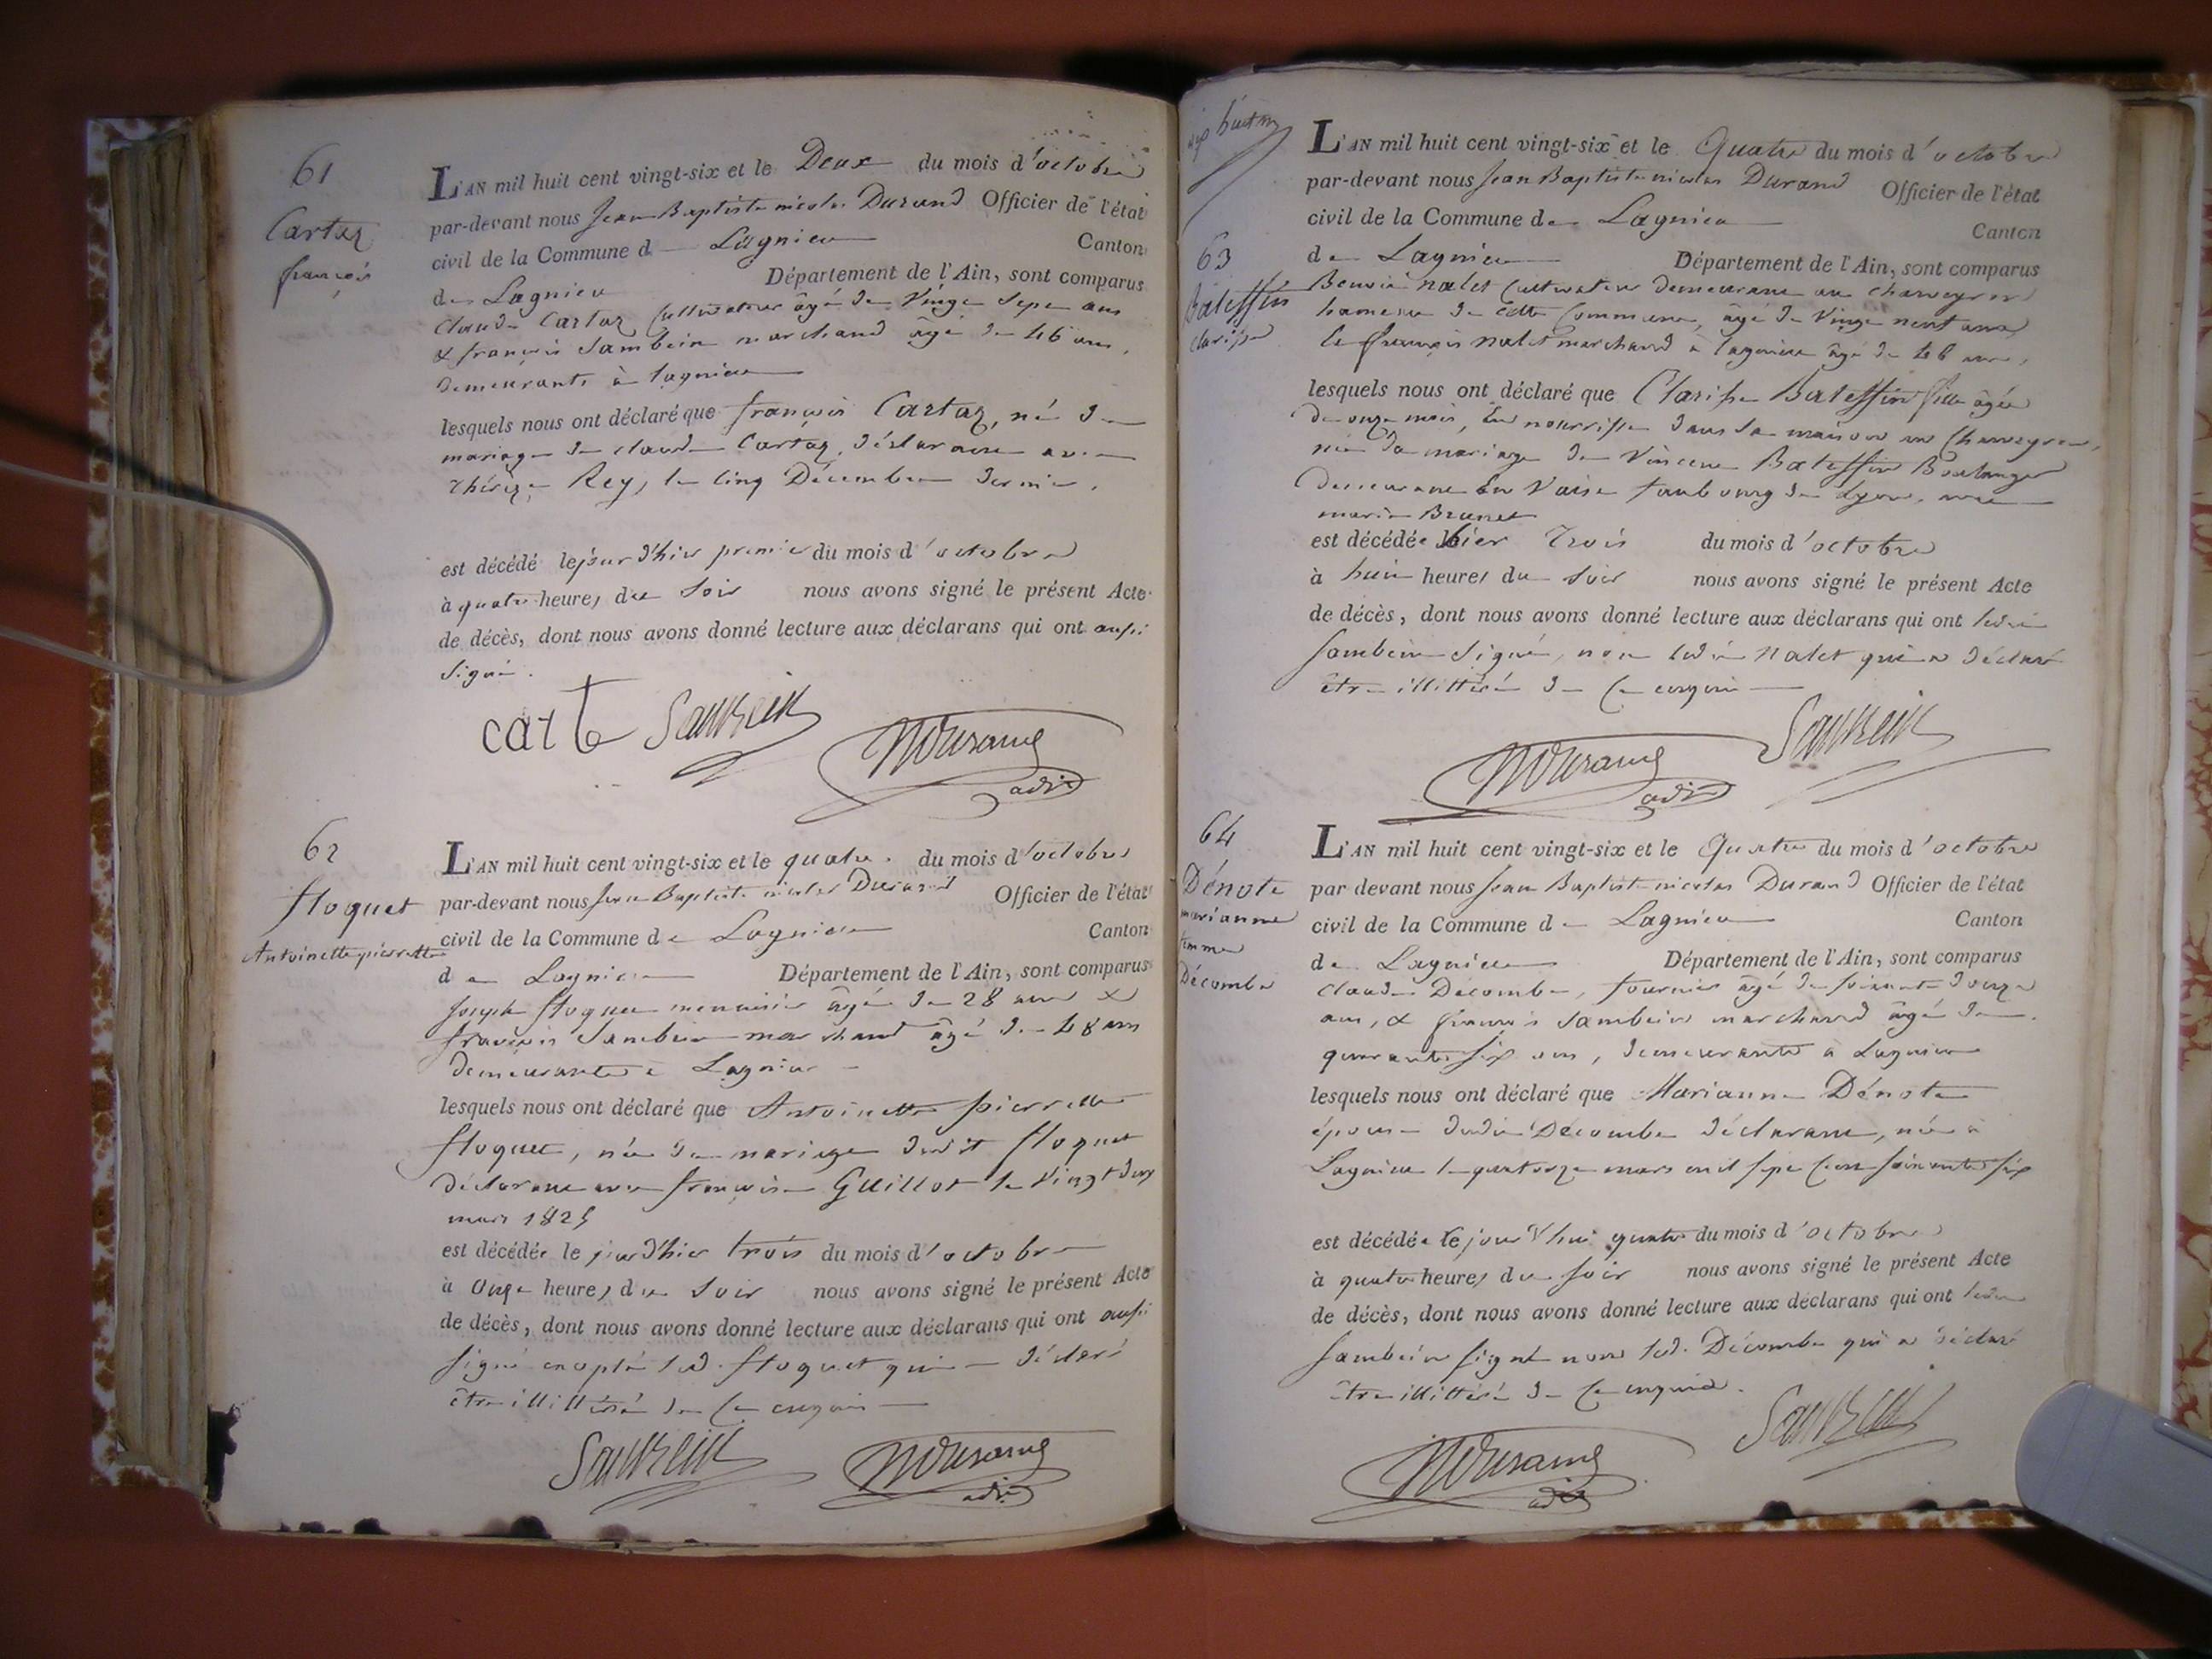 61
Cartaz
françois
L'AN mil huit cent vingt-six et le Deux du mois d'octobre
par-devant nous Jean Baptiste nicolas Durand Officier de l'état
civil de la Commune d Lagnieu Canton
de Lagnieu Département de l'Ain, sont comparus
Claude Cartaz Cultivateur âgé de Vingt Sept ans
& françois Sambein marchand âgé de 46 ans,
demeurants à lagnieu
lesquels nous ont déclaré que françois Cartaz, né du
mariage de claude Cartaz, déclarant avec
thérèze Rey, le cinq Décembre dernier.
est décédé le jour d'hier premier du mois d'octobre
à quatre heures du Soir nous avons signé le présent Acte
de décès, dont nous avons donné lecture aux déclarans qui ont aussi
Signé.
Sambein
62
floquet
Antoinette pierrette
L'AN mil huit cent vingt-six et le quatre du mois d'octobre
par-devant nous Jean Baptiste nicolas Durand Officier de l'état
civil de la Commune de Lagnieu Canton
de Lagnieu Département de l'Ain, sont comparus
Joseph floquet menuisier âgé de 28 ans &
françois Sambein marchand âgé de 48 ans
demeurants à Lagnieu
lesquels nous ont déclaré que Antoinette pierrette
floquet, née du mariage dudit floquet
déclarant avec françoise Guillot le Vingt deux
mars 1825
est décédée le jour d'hier trois du mois d'octobre
à Onze heures du Soir nous avons signé le présent Acte
de décès, dont nous avons donné lecture aux déclarans qui ont aussi
signé excepté led. floquet qui a déclaré
être illittéré de ce enquis
Sambein
63
Batessin
Clarisse
L'AN mil huit cent vingt-six et le Quatre du mois d'octobre
par-devant nous Jean Baptiste nicolas Durand Officier de l'état
civil de la Commune de Lagnieu Canton
de Lagnieu Département de l'Ain, sont comparus
Benoit nalet Cultivateur demeurant au charveyron
hameau de cette Commune, âgé de Vingt neuf ans
et françois marchand à lagnieu âgé de 46 ans,
lesquels nous ont déclaré que Clarisse Batessin fille âgée
de onze mois, en nourrisse dans sa maison au Charveyron,
née du mariage de Vincent Batessin Boulanger
demeurant En Vaise faubourg de Lyon, avec
marie Brunet
est décédée hier Trois du mois d'octobre
à huit heures du Soir nous avons signé le présent Acte
de décès, dont nous avons donné lecture aux déclarans qui ont ledit
Sambein Signé, non ledit Nalet qui a déclaré
être illittéré de ce enquis
Sambein
64
Dénote
marianne
femme
Décombe
L'AN mil huit cent vingt-six et le Quatre du mois d'octobre
par devant nous Jean Baptiste nicolas Durand Officier de l'état
civil de la Commune de Lagnieu Canton
de Lagnieu Département de l'Ain, sont comparus
claude Décombe, fournier âgé de soixante douze
ans, & françois Sambein marchand âgé de
quarante six ans, demeurants à Lagnieu
lesquels nous ont déclaré que Marianne Dénote
épouse dudit Décombe déclarant, née à
Lagnieu le quatorze mars mil sept cent soixante six
est décédée le jour d'hui quatre du mois d'octobre
à quatre heures du soir nous avons signé le présent Acte
de décès, dont nous avons donné lecture aux déclarans qui ont ledit
Sambein signé non led. Décombe qui a déclaré
être illittéré de ce enquis.
Sambein